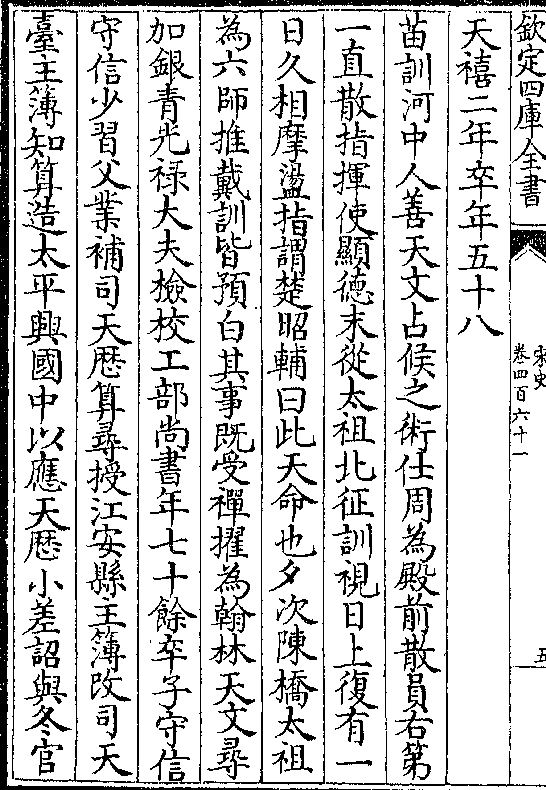 欽定四庫全書
宋史
卷四百六十一
五
天禧二年卒年五十八
苗訓河中人善天文占候之術仕周為殿前散員右第
一直散指揮使顯德末從太祖北征訓視日上復有一
日久相摩盪指謂楚昭輔曰此天命也夕次陳橋太祖
為六師推戴訓皆預白其事既受禪擢為翰林天文尋
加銀青光祿大夫檢校工部尚書年七十餘卒子守信
守信少習父業補司天歴算尋授江安縣主簿改司天
臺主簿知算造太平興國中以應天歴小差詔與冬官